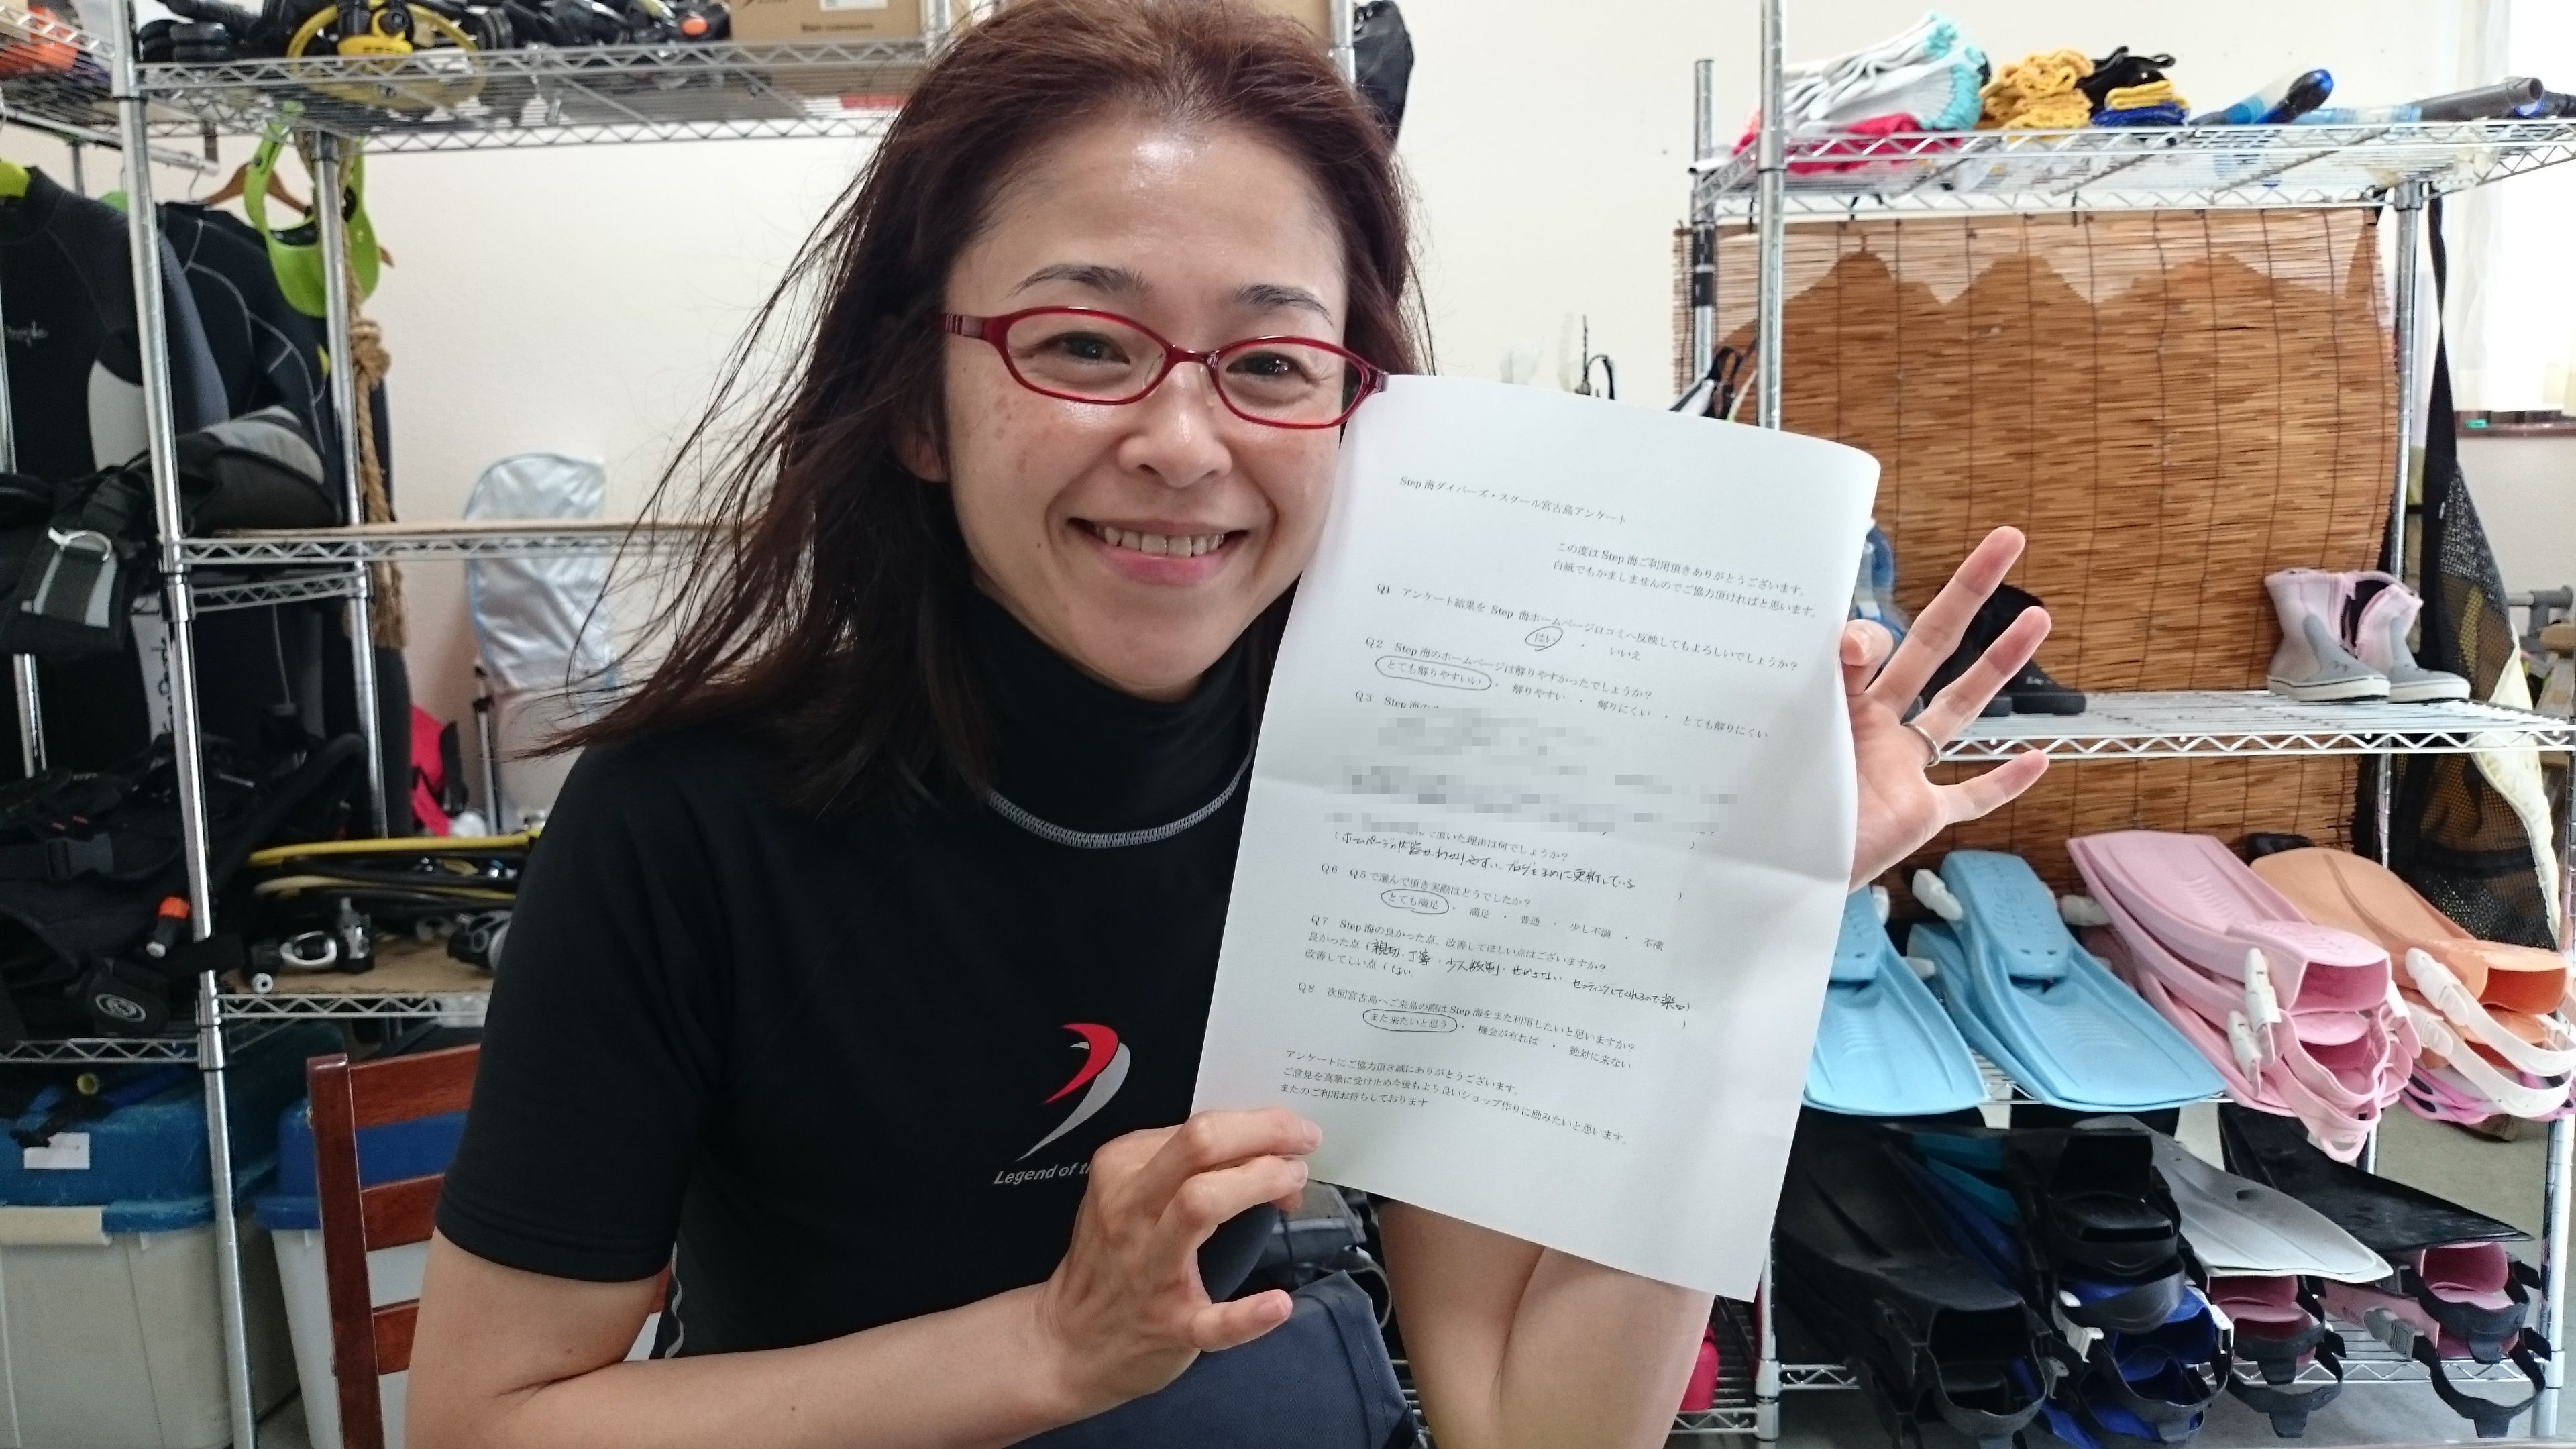 Step 海ダイバーズ・スクール宮古島アンケート
この度は Step 海ご利用頂きありがとうございます。
白紙でもかましませんのでご協力頂ければと思います。
Q1 アンケート結果を Step 海ホームページ口コミへ反映してもよろしいでしょうか？
はい ・ いいえ
Q2 Step 海のホームページは解りやすかったでしょうか？
とても解りやすいい ・ 解りやすい ・ 解りにくい ・ とても解りにくい
Q3 Step 海の
で頂いた理由は何でしょうか？
（ホームページの内容がわかりやすい、ブログをまめに更新している ）
Q6 Q5で選んで頂き実際はどうでしたか？
とても満足 ・ 満足 ・ 普通 ・ 少し不満 ・ 不満
Q7 Step 海の良かった点、改善してほしい点はございますか？
良かった点（親切・丁寧・少人数制・せかさない セッティングしてくれるので楽）
改善してしい点（ない ）
Q8 次回宮古島へご来島の際は Step 海をまた利用したいと思いますか？
また来たいと思う ・ 機会が有れば ・ 絶対に来ない
アンケートにご協力頂き誠にありがとうございます。
ご意見を真摯に受け止め今後もより良いショップ作りに励みたいと思います。
またのご利用お待ちしております
Legend of